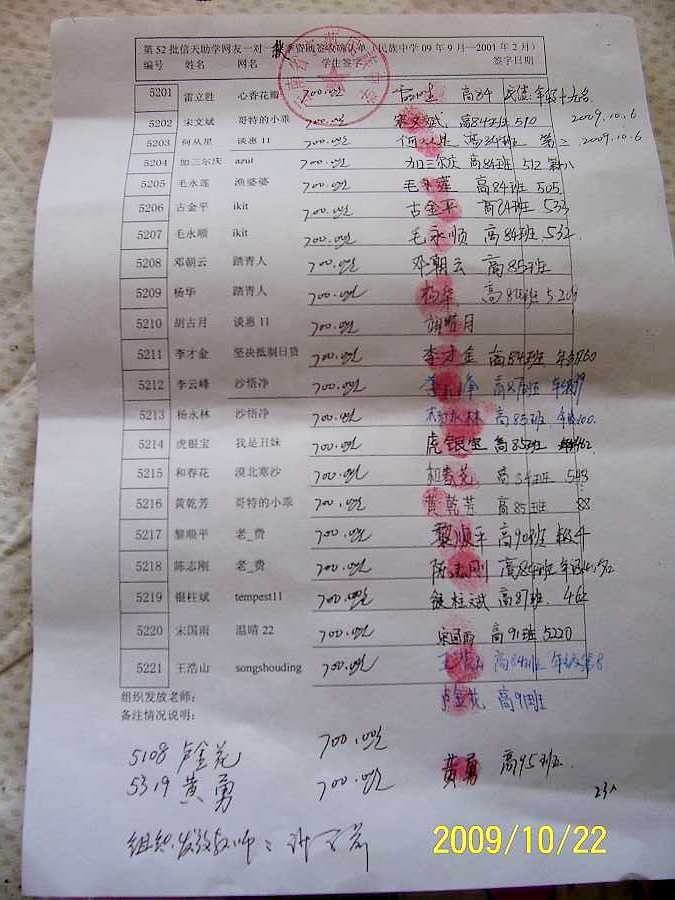 第 52 批信天助学网友一对一 资助签收确认单（民族中学 09 年 9 月—2001 年 2 月）
编号 姓名 网名 学生签字 签字日期
5201 雷立胜 心香花瓣 700.00元 高84
5202 宋文斌 哥特的小乖 700.00元 宋文斌 高84班 510 2009.10.6
5203 何从星 谈惠 11 700.00元 2009.10.6
5204 加三尔庆 azul 700.00元 加三尔庆 高84班 512
5205 毛永莲 渔婆婆 700.00元 毛永莲 高84班 505
5206 古金平 ikit 700.00元 古金平 高84班 533
5207 毛永顺 ikit 700.00元 毛永顺 高84班 532
5208 邓朝云 踏青人 700.00元 邓朝云 高85班
5209 杨华 踏青人 700.00元 杨华
5210 胡古月 谈惠 11 700.00元
5211 李才金 坚决抵制日货 700.00元 李才金 高84班
5212 李云峰 沙悟净 700.00元 李云峰
5213 杨永林 沙悟净 700.00元 杨永林 高85班
5214 虎银宝 我是丑妹 700.00元 虎银宝 高85班
5215 和春花 漠北寒沙 700.00元 和春花 高84班 548
5216 黄乾芳 哥特的小乖 700.00元 黄乾芳 高85班
5217 黎顺平 老_费 700.00元 黎顺平 高90班
5218 陈志刚 老_费 700.00元 陈志刚 高84班
5219 银柱斌 tempest11 700.00元 银柱斌 462
5220 宋国雨 温晴 22 700.00元 宋国雨 高91班 5220
5221 王浩山 songshouding 700.00元 王浩山 高84班
组织发放老师： 卢金花 高91班
备注情况说明：
5108 卢金花 700.00元
5319 黄勇 700.00元 黄勇 高95班
23人
组织发放教师：
2009/10/22